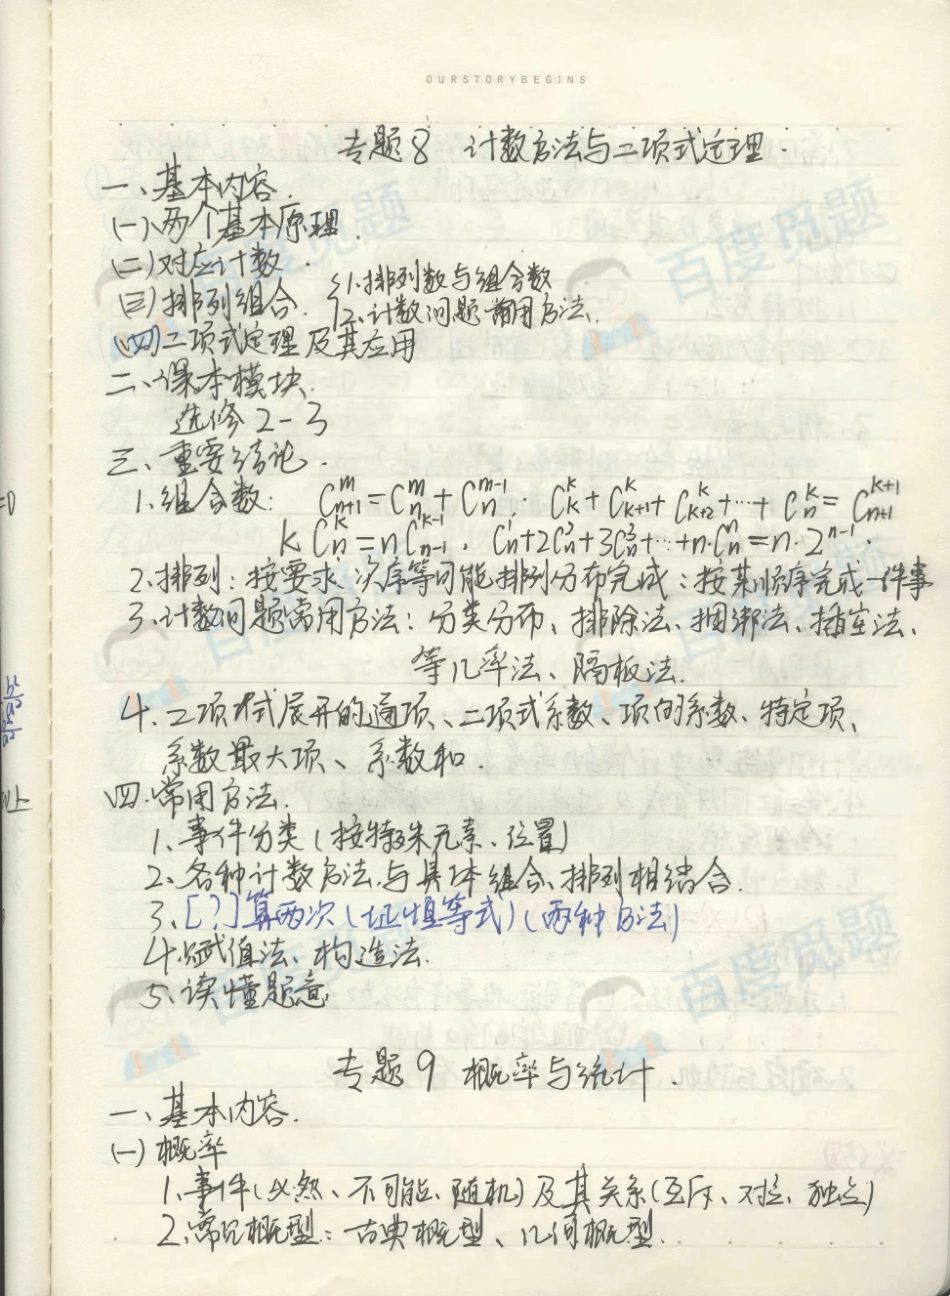 OURSTORYBEGINS
专题8 计数方法与二项式定理.
一、基本内容.
(一)、两个基本原理.
(二)对应计数.
(三)排列组合. {1.排列数与组合数
2.计数问题常用方法.
(四)二项式定理及其应用
二、课本模块.
选修2-3
三、重要结论.
1.组合数: C_{n+1}^{m}=C_n^m+C_n^{m-1}. C_k^k+C_{k+1}^k+C_{k+2}^k+…+C_n^k=C_{n+1}^{k+1}
kC_n^k=nC_{n-1}^{k-1}. C_n^1+2C_n^2+3C_n^3+…+n·C_n^n=n·2^{n-1}.
2.排列:按要求、次序等可能排列分布完成:按某顺序完成一件事
3、计数问题常用方法:分类分布、排除法、捆绑法、插空法、
等几率法、隔板法.
4.二项式展开的通项、二项式系数、项的系数、特定项、
系数最大项、系数和.
四.常用方法.
1、事件分类(按特殊元素、位置)
2、各种计数方法与具体组合、排列相结合.
3、[?]算两次(证恒等式)(两种方法)
4.赋值法、构造法.
5、读懂题意
专题9 概率与统计.
一、基本内容.
(一)概率
1、事件(必然、不可能、随机)及其关系(互斥、对立、独立)
2、常见概型:古典概型、几何概型.
百度觅题
百度觅题
百度觅题
百度觅题
百度觅题
百度觅题